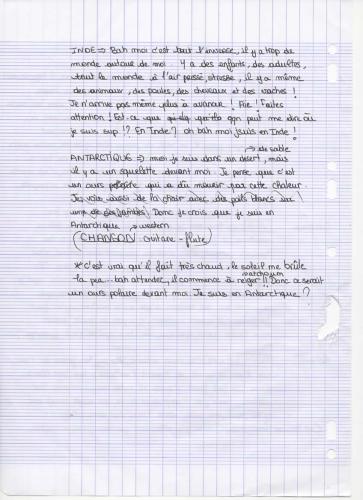 INDE → Bah moi c'est tout l'inverse, il y a trop de
monde autour de moi. Y a des enfants, des adultes,
tout le monde à l'air pressé, stressé, il y a même
des animaux, des poules, des chevaux et des vaches !
Je n'arrive pas même plus à avancer ! Aie ! Faites
attention ! Est-ce que qu'on peut me dire où
je suis svp !? En Inde ? oh bah moi j'suis en Inde !
→ de sable
ANTARCTIQUE → moi je suis dans un désert, mais
il y a un squelette devant moi. Je pense que c'est
un ours polaire qui a dû mourir par cette chaleur.
Je vois aussi de la chair avec des poils blancs sur
une de ses jambes. Donc je crois que je suis en
Antarctique → western
(CHANSON guitare - flute)
* c'est vrai qu'il fait très chaud, le soleil me brûle
la peau... bah attendez, il commence à neiger !! Donc ce serait
un ours polaire devant moi. Je suis en Antarctique ?